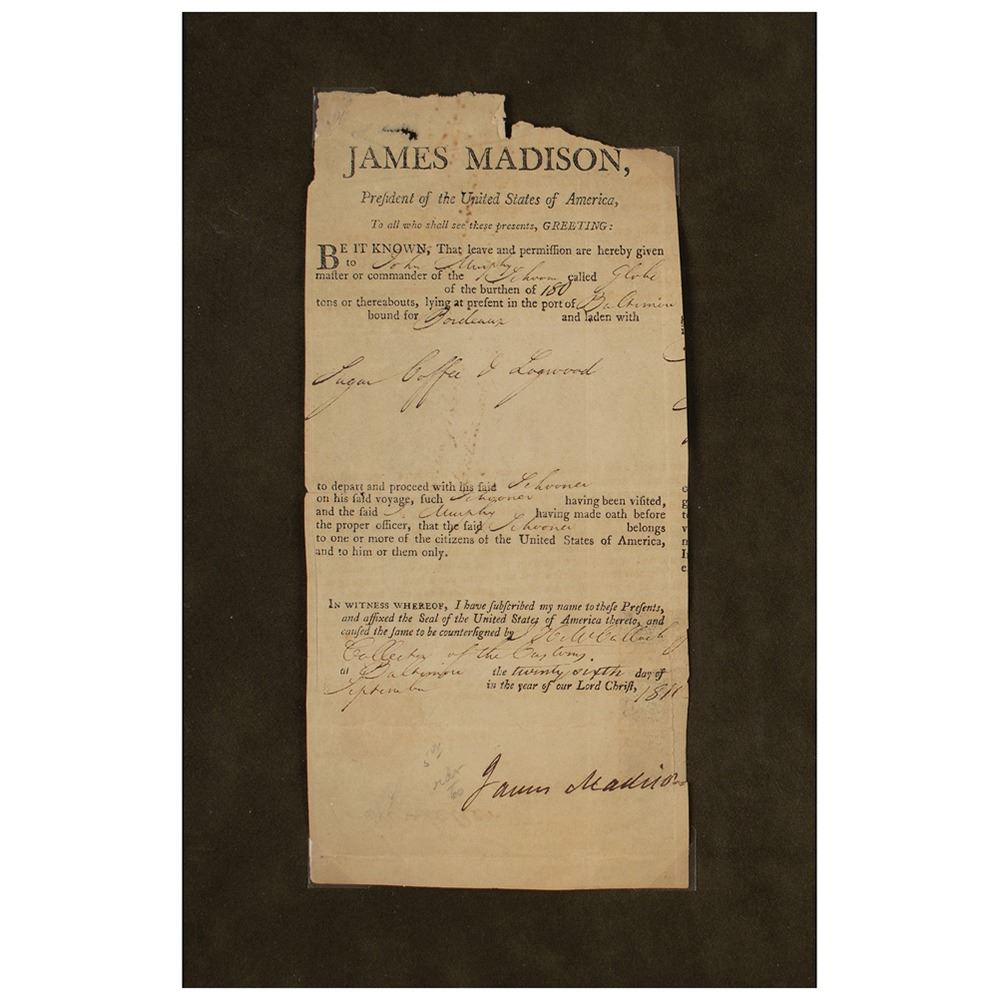 JAMES MADISON,
Preſident of the United States of America,
To all who shall see these presents, GREETING:
BE IT KNOWN, That leave and permiſſion are hereby given
to John Murphy
maſter or commander of the Schoonr called Globe
of the burthen of 180
tons or thereabouts, lying at preſent in the port of Baltimore
bound for Bordeaux and laden with
Sugar Coffee & Logwood
to depart and proceed with his ſaid Schooner
on his ſaid voyage, ſuch Schooner having been viſited,
and the ſaid J. Murphy having made oath before
the proper officer, that the ſaid Schooner belongs
to one or more of the citizens of the United States of America,
and to him or them only.
IN WITNESS WHEREOF, I have ſubſcribed my name to theſe Preſents,
and affixed the Seal of the United States of America thereto, and
cauſed the ſame to be counterſigned by J H McCulloch
Collector of the Customs.
at Baltimore the twenty sixth day of
September in the year of our Lord Chriſt, 1811
James Madison